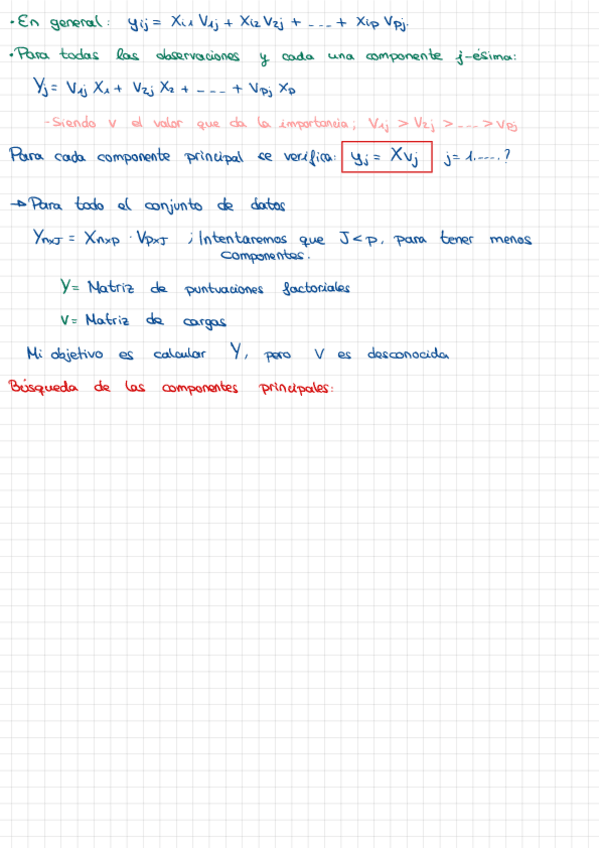 ·En general: yij = Xi1 V1j + Xi2 V2j + ---- + Xip Vpj.
·Para todas las observaciones y cada una componente j-ésima:
Yj = V1j X1 + V2j X2 + ---- + Vpj Xp
-Siendo v el valor que da la importancia; V1j > V2j > ---- > Vpj
Para cada componente principal se verifica: yj = Xvj j = 1.....?
→ Para todo el conjunto de datos
YnxJ = Xnxp · VpxJ ; Intentaremos que J<p, para tener menos
componentes.
Y = Matriz de puntuaciones factoriales
V = Matriz de cargas
Mi objetivo es calcular Y, pero V es desconocida
Búsqueda de las componentes principales: